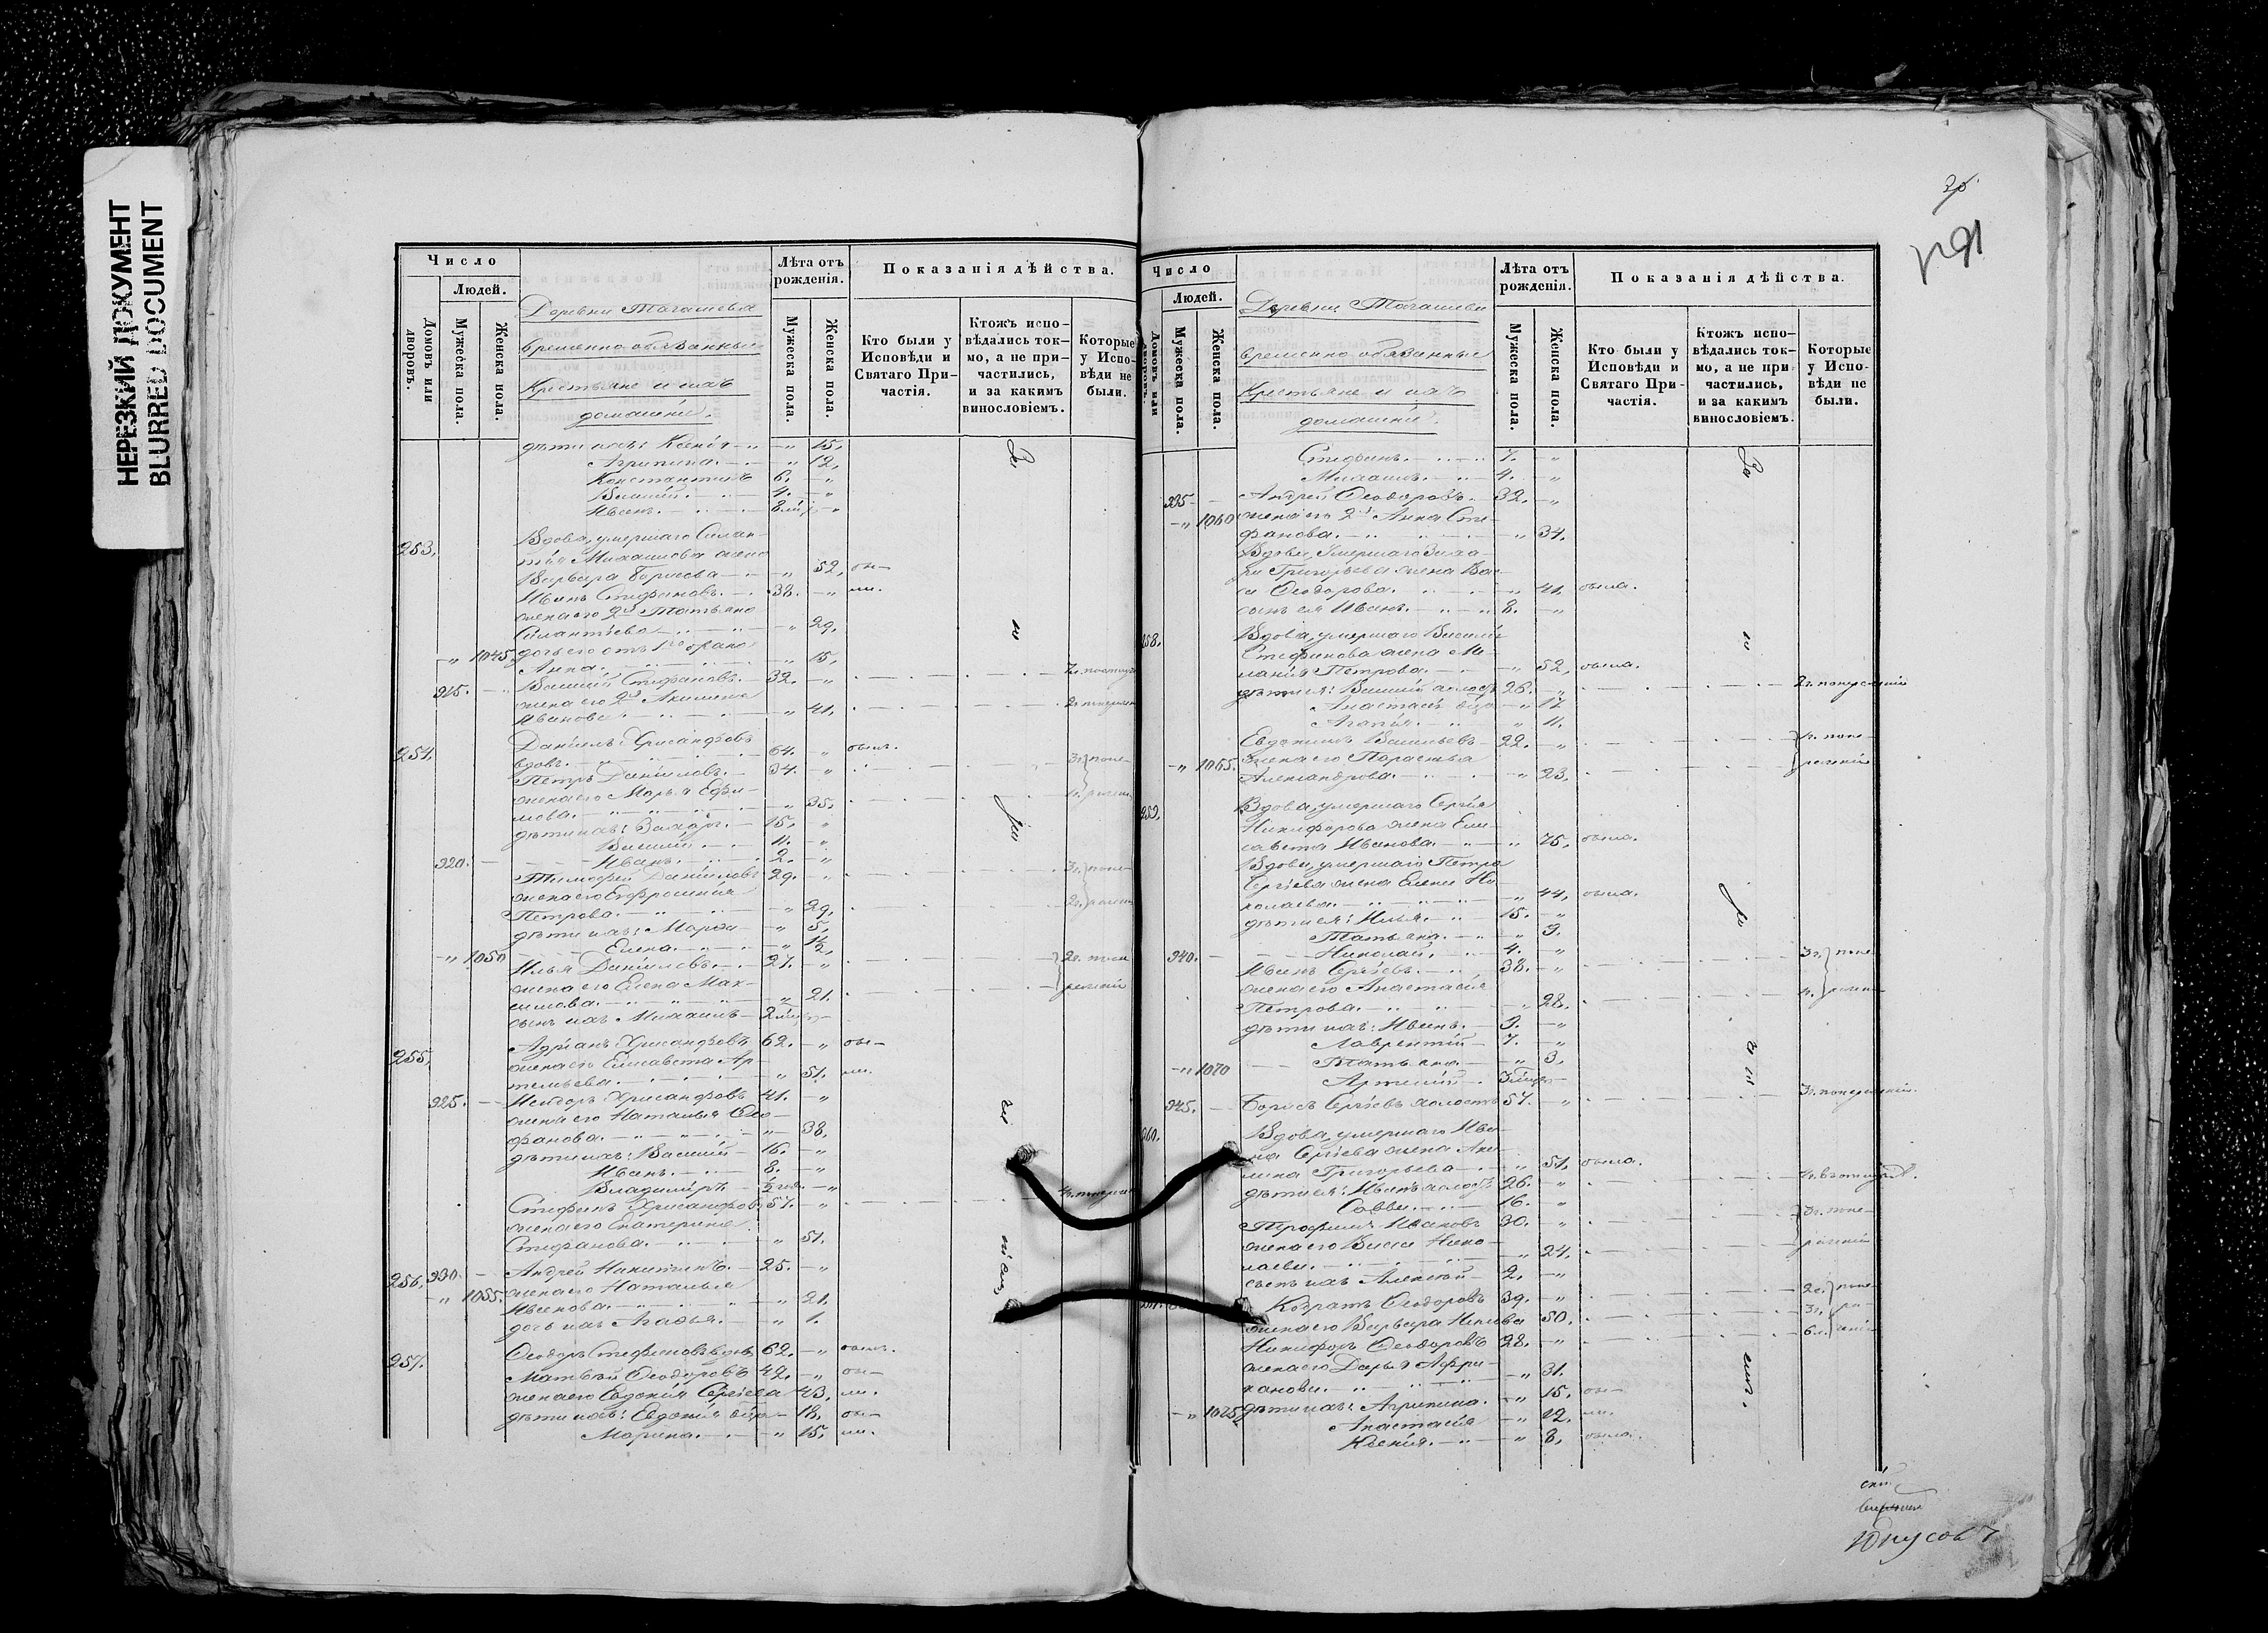 НЕРЕЗКИЙ ДОКУМЕНТ
BLURRED DOCUMENT
Число
Людей.
Домовъ или дворовъ.
Мужеска пола.
Женска пола.
Деревни
временно обязанные
Крестьяне и ихъ
домашніе.
Лѣта отъ рожденія.
Мужеска пола.
Женска пола.
Показанія дѣйства.
Кто были у Исповѣди и Святаго Причастія.
Ктожъ исповѣдались токмо, а не причастились, и за какимъ винословіемъ.
Которые у Исповѣди не были.
дѣти ихъ: Ксенія 15.
Агрипина 12.
Константинъ 6.
Василій 4.
Иванъ
253. Вдова, умершаго Силан-
тія Михаилова жена
Варвара Борисова 52, бы-
Иванъ Стефановъ 38. ли.
жена его 2я Татьяна
Силантіева 29.
1045. дочь его отъ 1го брака
Анна 15.
915. Василій Стефановъ 32.
жена его 2я Акилина
Иванова 41.
254. Даніилъ Хрисанфовъ
вдовъ 64. былъ.
Петръ Даніиловъ 34.
жена его Марья Ефи-
мова 35.
дѣти ихъ: Захаръ 15.
Василій 11.
920. Иванъ 2.
Тимофей Даніиловъ 29.
жена его Евфросинія
Петрова 29.
дѣти ихъ: Марѳа 5.
1050 Елена 1½
Илья Даніиловъ 27.
жена его Елена Мак-
симова 21.
сынъ ихъ Михаилъ
255. Адріанъ Хрисанфовъ 62. бы-
жена его Елисавета Ар-
темьева 51. ли.
925. Исидоръ Хрисанфовъ 41.
жена его Наталья Сте-
фанова 38.
дѣти ихъ: Василій 16.
Иванъ 8.
Владиміръ ½ года
Стефанъ Хрисанфовъ 57.
жена его Екатерина
Стефанова 51.
256. 930. Андрей Никитинъ 25.
1055. жена его Наталья
Иванова 21.
дочь ихъ Агафья 1.
257. Ѳеодоръ Стефановъ вдовъ 62. былъ.
Матвѣй Ѳеодоровъ 42. бы-
жена его Евдокія Сергіева 43. ли.
дѣти ихъ: Евдокія 18. бы-
Марина 15. ли.
Число
Людей.
Домовъ или дворовъ.
Мужеска пола.
Женска пола.
Деревни
временно обязанные
Крестьяне и ихъ
домашніе.
Лѣта отъ рожденія.
Мужеска пола.
Женска пола.
Показанія дѣйства.
Кто были у Исповѣди и Святаго Причастія.
Ктожъ исповѣдались токмо, а не причастились, и за какимъ винословіемъ.
Которые у Исповѣди не были.
Стефанъ 7.
Михаилъ 4.
935. Андрей Ѳеодоровъ 32.
1060 жена его 2я Анна Сте-
фанова 34.
Вдова, умершаго Заха-
ра Григорьева жена Вас-
са Ѳеодорова 41. была.
сынъ ея Иванъ 8.
258. Вдова, умершаго Василія
Стефанова жена Ме-
ланія Петрова 52, была.
дѣти ея: Василій холостъ 26.
Анастасія 17.
Агапія 11.
Евдокимъ Васильевъ 22.
1065. жена его Параскева
Александрова 23.
259. Вдова, умершаго Сергія
Никифорова жена Ели-
савета Иванова 75, была.
Вдова, умершаго Петра
Сергіева жена Елена Ни-
колаева 44, была.
дѣти ея: Илья 15.
Татьяна 9.
940. Николай 4.
Иванъ Сергіевъ 38.
жена его Анастасія
Петрова 28.
дѣти ихъ: Иванъ 9.
Лаврентій 7.
1070 Татьяна 3.
Артемій
945. Борисъ Сергіевъ холостъ 57.
260. Вдова, умершаго Ива-
на Сергіева жена Аки-
лина Григорьева 51, была.
дѣти ея: Иванъ холостъ 26.
Савва 16.
Трофимъ Ивановъ 30.
жена его Васса Нико-
лаева 24.
сынъ ихъ Алексѣй 2.
Кодратъ Ѳеодоровъ 39.
жена его Варвара 50.
Никифоръ Ѳеодоровъ 28.
жена его Дарья Афри-
канова 31.
1075 дѣти ихъ: Агрипина 15. бы-
Анастасія 12. ли.
Ксенія 8. была.
Юнусов